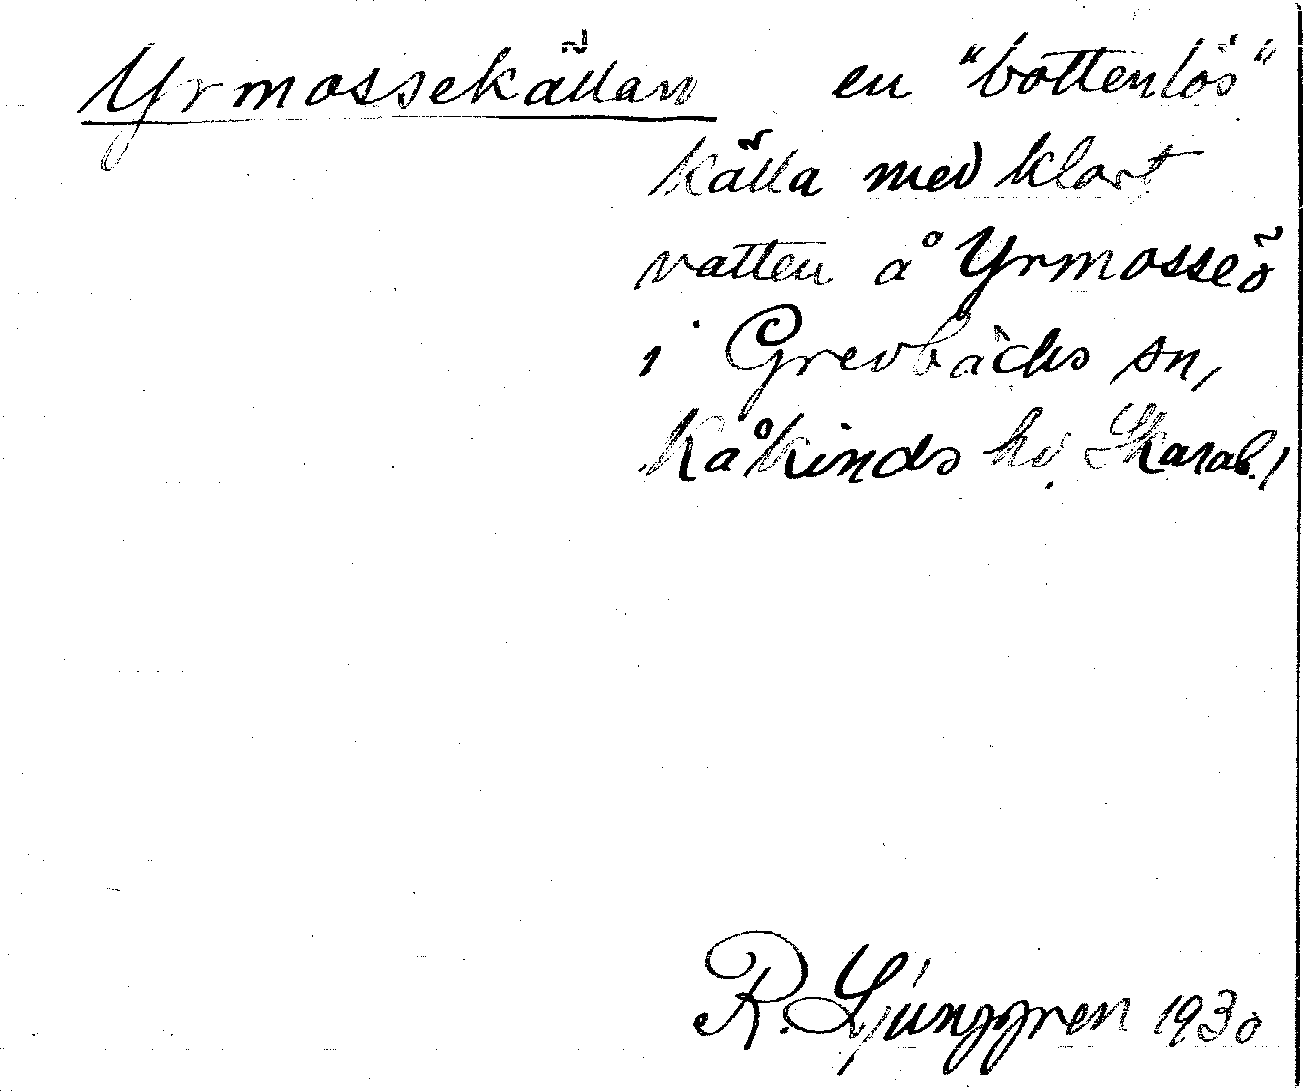 Yrmossekällan en "bottenlös"
källa med klart
vatten å Yrmosseö
i Grevbäcks sn,
Kåkinds hd. Skarab. l
R. Ljunggren 1930